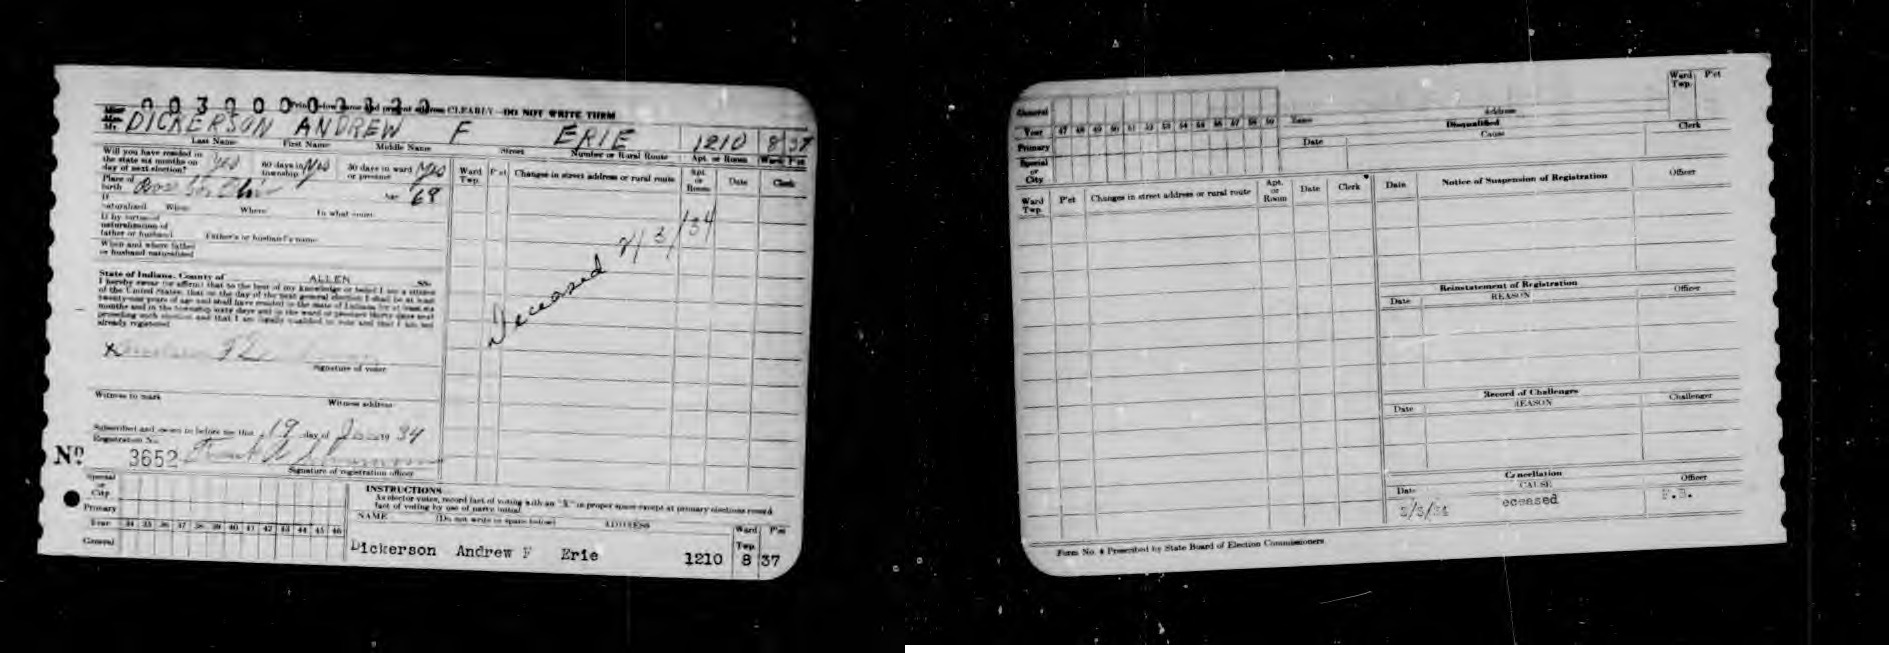 0030000
Print below name and present address CLEARLY—DO NOT WRITE THEM
Mr. DICKERSON ANDREW F ERIE 1210 8 37
Last Name First Name Middle Name Street Number or Rural Route Apt. or Room Ward P'ct
Will you have resided in the state six months on day of next election? Yes 60 days in township Yes 30 days in ward or precinct Yes
Place of birth Ross Co. Ohio Age 68
If naturalized When Where In what court
If by virtue of naturalization of father or husband Father's or husband's name
When and where father or husband naturalized
Ward Twp. P'ct Changes in street address or rural route Apt. or Room Date Clerk
Deceased 3/34
State of Indiana, County of ALLEN SS:
I hereby swear (or affirm) that to the best of my knowledge or belief I am a citizen
of the United States; that on the day of the next general election I shall be at least
twenty-one years of age and shall have resided in the state of Indiana for at least six
months and in the township sixty days and in the ward or precinct thirty days next
preceding such election and that I am legally qualified to vote and that I am not
already registered
X
Signature of voter
Witness to mark Witness address
Subscribed and sworn to before me this 19 day of Jan 19 34
Registration No.
No. 3652
Signature of registration officer
Special or City
Primary
Year 34 35 36 37 38 39 40 41 42 43 44 45 46
General
INSTRUCTIONS
As elector votes, record fact of voting with an "X" in proper space except at primary elections record
fact of voting by use of party initial
NAME (Do not write in space below) ADDRESS Ward Twp. P'ct
Dickerson Andrew F Erie 1210 8 37
Ward Twp. P'ct
General
Year 47 48 49 50 51 52 53 54 55 56 57 58 59
Primary
Special or City
Name Address
Disqualified
Date Cause Clerk
Ward Twp. P'ct Changes in street address or rural route Apt. or Room Date Clerk
Date Notice of Suspension of Registration Officer
Reinstatement of Registration
Date REASON Officer
Record of Challenges
Date REASON Challenger
Cancellation
Date CAUSE Officer
3/3/34 eceased F.B.
Form No. 4 Prescribed by State Board of Election Commissioners